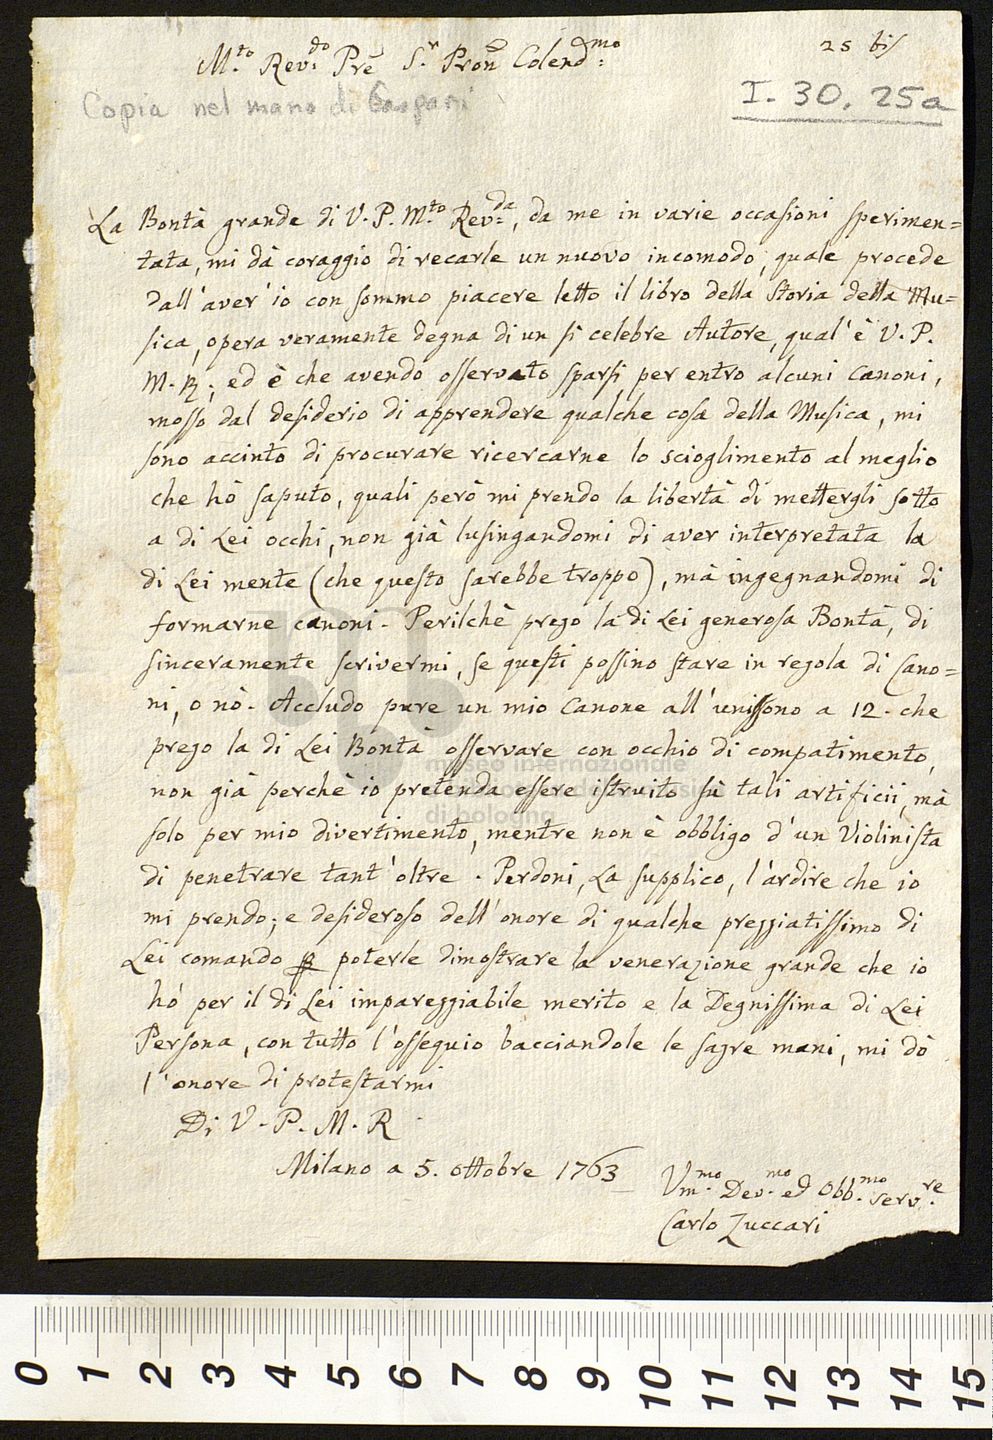 25 bis
M.to Rev.do Prẽ S.r Pron̄ Colend.mo
I. 30. 25a
Copia nel mano di Gaspari
La Bontà grande di V. P. M.to Rev.da, da me in varie occasioni sperimen=
tata, mi dà coraggio di recarle un nuovo incomodo, quale procede
dall'aver'io con sommo piacere letto il libro della Storia della Mu=
sica, opera veramente degna di un sì celebre Autore, qual'è V. P.
M. R.; ed è che avendo osservato sparsi per entro alcuni Canoni,
mosso dal desiderio di apprendere qualche cosa della Musica, mi
sono accinto di procurare ricercarne lo scioglimento al meglio
che hò saputo, quali però mi prendo la libertà di mettergli sotto
a di Lei occhi, non già lusingandomi di aver interpretata la
di Lei mente (che questo sarebbe troppo), mà ingegnandomi di
formarne canoni. Perilchè prego la di Lei generosa Bontà, di
sinceramente scrivermi, se questi possino stare in regola di Cano=
ni, o nò. Accludo pure un mio Canone all'unissono a 12. che
prego la di Lei Bontà osservare con occhio di compatimento,
non già perchè io pretenda essere istruito sù tali artificii, mà
solo per mio divertimento, mentre non è obbligo d'un Violinista
di penetrare tant'oltre. Perdoni, La supplico, l'ardire che io
mi prendo; e desideroso dell'onore di qualche preggiatissimo di
Lei comando ꝑ poterle dimostrare la venerazione grande che io
hò per il di Lei impareggiabile merito e la Degnissima di Lei
Persona, con tutto l'ossequio bacciandole le sagre mani, mi dò
l'onore di protestarmi
Di V. P. M. R.
Milano a 5. ottobre 1763
Um.mo Dev.mo ed Obb.mo Serv.re
Carlo Zuccari
museo internazionale
di bologna
0 1 2 3 4 5 6 7 8 9 10 11 12 13 14 15